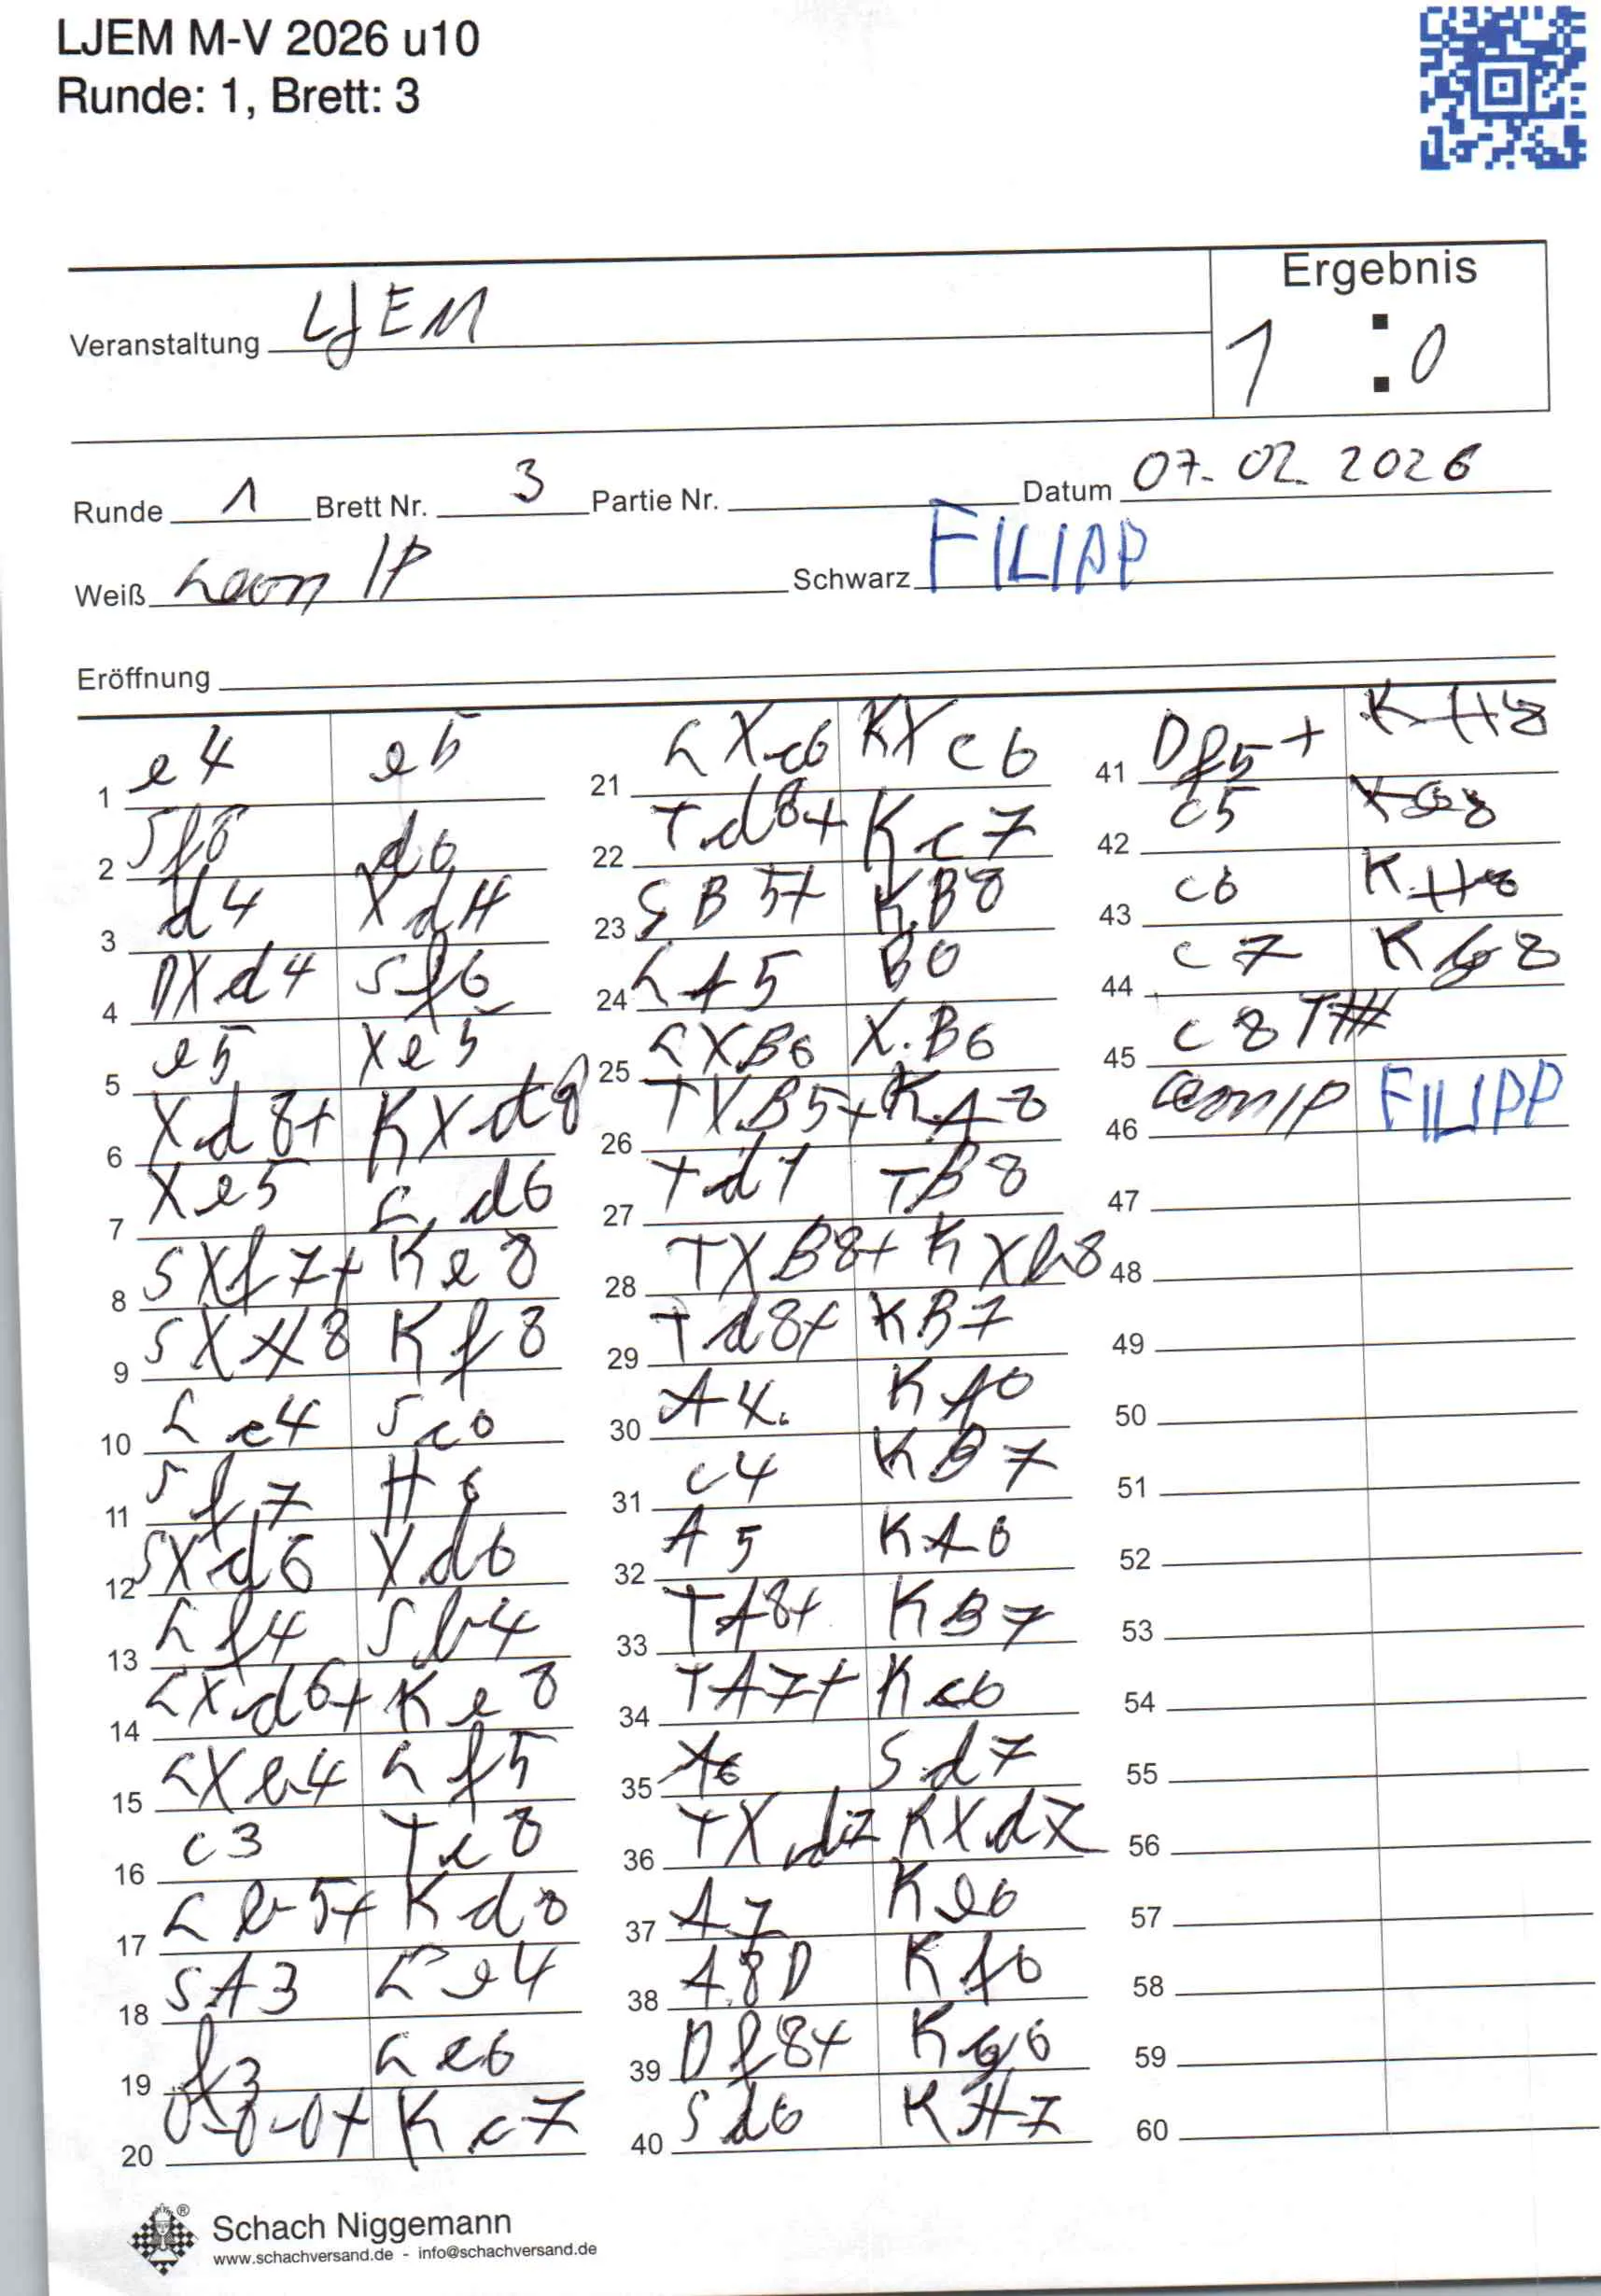 LJEM M-V 2026 u10
Runde: 1, Brett: 3
Ergebnis
Veranstaltung LJEM
1 : 0
Runde 1 Brett Nr. 3 Partie Nr. Datum 07.02.2026
Weiß Leon IP Schwarz FILIPP
Eröffnung
1 e4 e5
2 Sf6 d6
3 d4 Xd4
4 DXd4 Sf6
5 e5 Xe5
6 Xd8+ KXd8
7 Xe5 Ld6
8 SXf7+ Ke8
9 SXH8 Kf8
10 Lc4 Sc6
11 Sf7 H6
12 SXd6 Xd6
13 Lf4 Sb4
14 LXd6+ Ke8
15 LXb4 Lf5
16 c3 Tc8
17 Lb5+ Kd8
18 SA3 Le4
19 f3 Lc6
20 0-0-0+ Kc7
21 LXc6 KXc6
22 Td8+ Kc7
23 SB5+ KB8
24 LA5 B6
25 LXB6 X.B6
26 TXB5+ KA8
27 Td1 TB8
28 TXB8+ KXb8
29 Td8+ KB7
30 A4. KA6
31 c4 KB7
32 A5 KA6
33 TA8+ KB7
34 TA7+ Kc6
35 A6 Sd7
36 TXd7 KXd7
37 A7 Ke6
38 A8D Kf6
39 Df8+ KG6
40 Sd6 KH7
41 Df5+ KH8
42 c5 KG8
43 c6 KH8
44 c7 KG8
45 c8T#
46 Leon IP FILIPP
47
48
49
50
51
52
53
54
55
56
57
58
59
60
Schach Niggemann
www.schachversand.de - info@schachversand.de